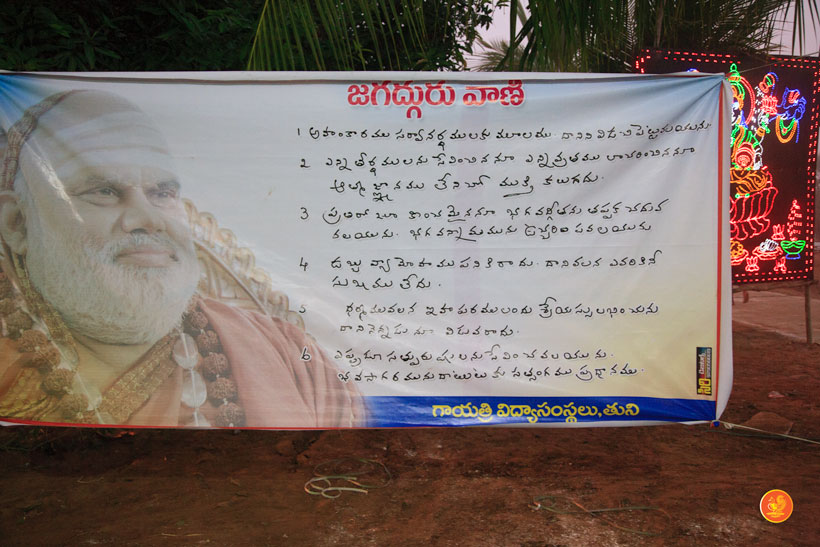 జగద్గురు వాణి
1 అహంకారము సర్వానర్థములకు మూలము. దానిని విడిచిపెట్టవలయును
2 ఎన్ని తీర్థములను సేవించిననూ ఎన్ని వ్రతములాచరించిననూ
ఆత్మజ్ఞానము లేనిచో ముక్తి కలుగదు.
3 ప్రతిరోజూ కొంచమైననూ భగవద్గీతను తప్పక చదువ
వలయును. భగవన్నామమును ఉచ్చరింపవలయును
4 డబ్బు వ్యామోహము పనికిరాదు. దానివలన ఎవరికినీ
సుఖము లేదు.
5 ధర్మమువలన ఇహపరములందు శ్రేయస్సు లభించును
దానినెన్నడునూ విడువరాదు.
6 ఎప్పుడూ సత్పురుషులను సేవించవలయును.
భవసాగరమును దాటుటకు సత్సంగము ప్రధానము.
గాయత్రి విద్యాసంస్థలు,తుని
సిరి